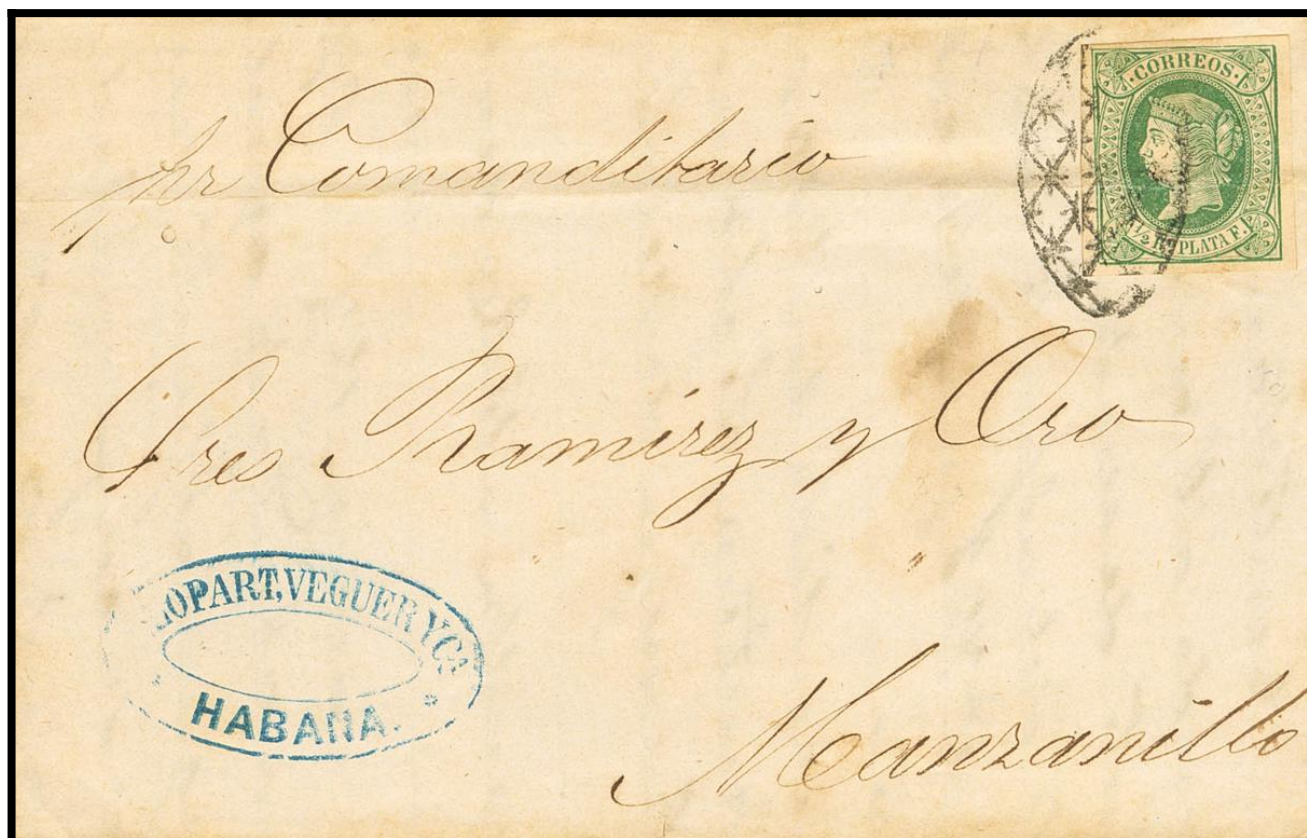 CORREOS
1/2 Rl PLATA F.
pr Comanditario
Sres Ramirez y Oro
LOPART, VEGUER Y Ca
HABANA.
Manzanillo